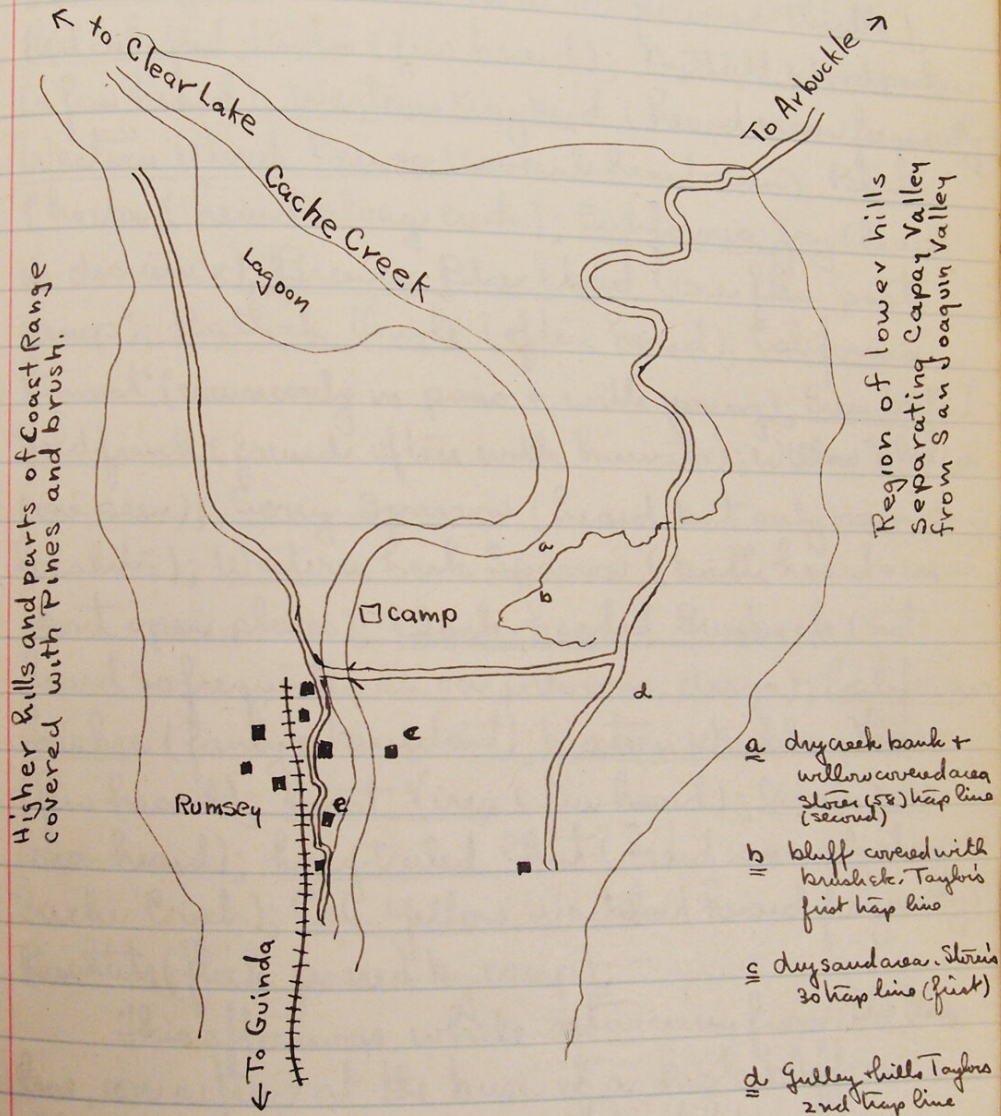 ← to Clear Lake
To Arbuckle →
Cache Creek
Lagoon
Higher hills and parts of Coast Range
covered with Pines and brush.
Region of lower hills
Separating Capay Valley
from San Joaquin Valley
a
b
camp
d
c
Rumsey
e
← To Guinda
a dry creek bank +
willow covered area
Storer (58) trap line
(second)
b bluff covered with
brush etc. Taylor's
first trap line
c dry sand area. Storer's
30 trap line (first)
d Gulley + hills Taylors
2nd trap line